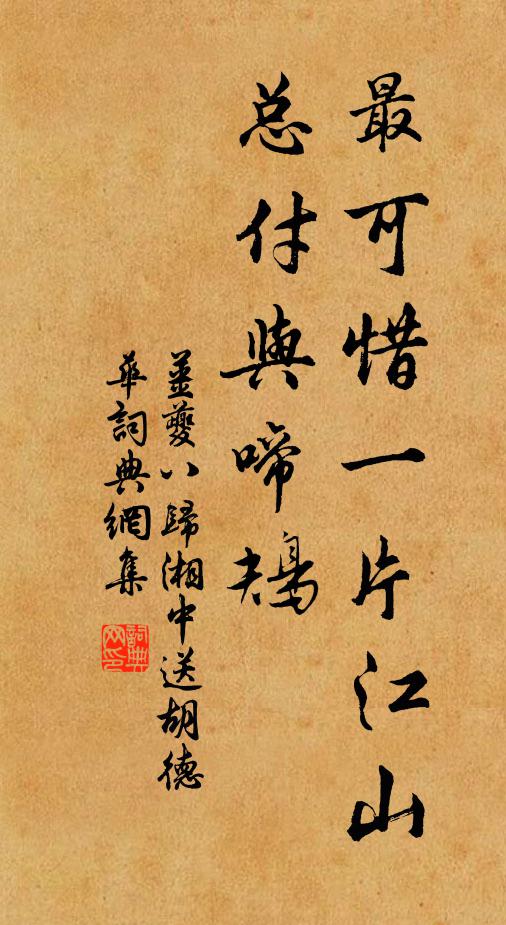 最可惜一片江山
总付與啼鴂
薑夔八歸湘中送胡德
華詞典網集
詞典
网印